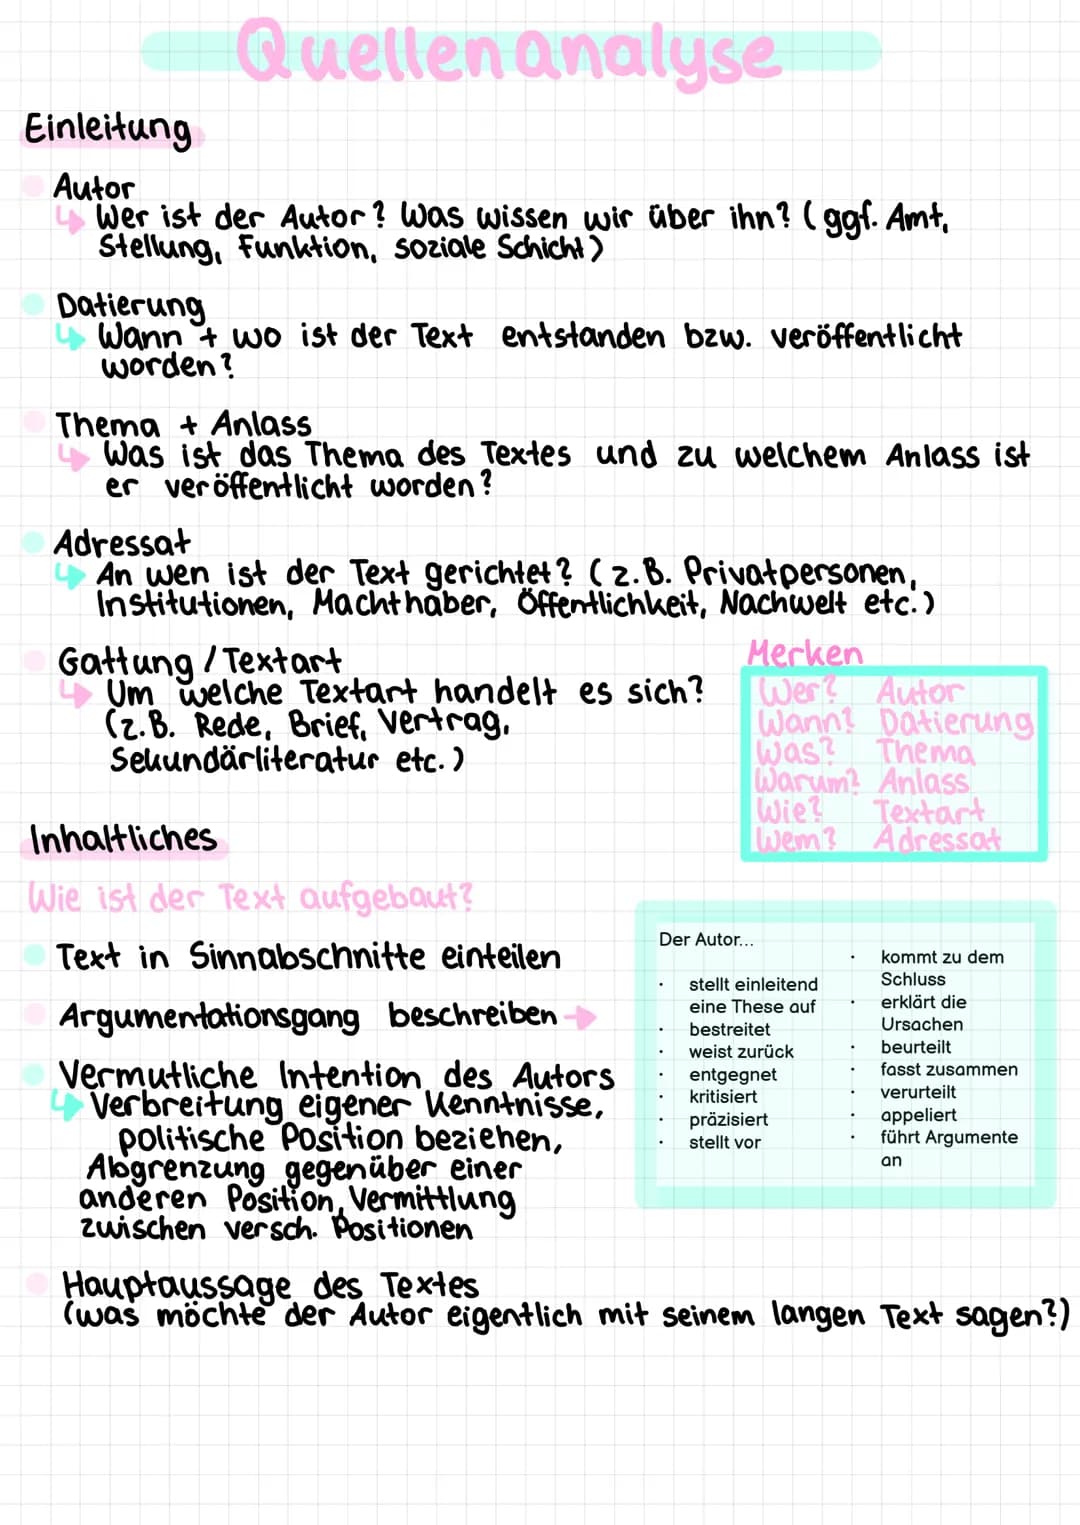 Quellenanalyse
Einleitung
Autor
Wer ist der Autor? Was wissen wir über ihn? (ggf. Amt,
Stellung, Funktion, soziale Schicht)
Datierung
Wann + wo ist der Text entstanden bzw. veröffentlicht
worden?
Thema + Anlass
Was ist das Thema des Textes und zu welchem Anlass ist
er veröffentlicht worden?
Adressat
An wen ist der Text gerichtet? (z.B. Privatpersonen,
Institutionen, Machthaber, Öffentlichkeit, Nachwelt etc.)
Gattung / Textart
Um welche Textart handelt es sich?
(z.B. Rede, Brief, Vertrag,
Sekundärliteratur etc.)
Merken
Wer? Autor
Wann? Datierung
Was? Thema
Warum? Anlass
Wie? Textart
Wem? Adressat
Inhaltliches
Wie ist der Text aufgebaut?
Text in Sinnabschnitte einteilen
Argumentationsgang beschreiben
Vermutliche Intention des Autors
Verbreitung eigener Kenntnisse,
politische Position beziehen,
Abgrenzung gegenüber einer
anderen Position, Vermittlung
zwischen versch. Positionen
Der Autor...
· stellt einleitend
eine These auf
· bestreitet
· weist zurück
· entgegnet
· kritisiert
· präzisiert
· stellt vor
· kommt zu dem
Schluss
· erklärt die
Ursachen
· beurteilt
· fasst zusammen
· verurteilt
· appeliert
· führt Argumente
an
Hauptaussage des Textes
(was möchte der Autor eigentlich mit seinem langen Text sagen?)